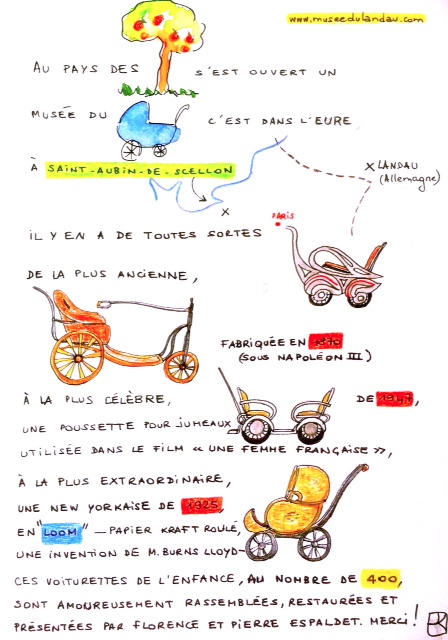 www.museedulandau.com
AU PAYS DES S'EST OUVERT UN
MUSÉE DU C'EST DANS L'EURE
À SAINT-AUBIN-DE-SCELLON
X LANDAU
(Allemagne)
X
PARIS
IL Y EN A DE TOUTES SORTES
DE LA PLUS ANCIENNE,
FABRIQUÉE EN 1870
(SOUS NAPOLÉON III)
À LA PLUS CÉLÈBRE,
DE 1947,
UNE POUSSETTE POUR JUMEAUX
UTILISÉE DANS LE FILM « UNE FEMME FRANÇAISE »,
À LA PLUS EXTRAORDINAIRE,
UNE NEW YORKAISE DE 1925,
EN "LOOM" — PAPIER KRAFT ROULÉ,
UNE INVENTION DE M. BURNS LLOYD-
CES VOITURETTES DE L'ENFANCE, AU NOMBRE DE 400,
SONT AMOUREUSEMENT RASSEMBLÉES, RESTAURÉES ET
PRÉSENTÉES PAR FLORENCE ET PIERRE ESPALDET. MERCI !